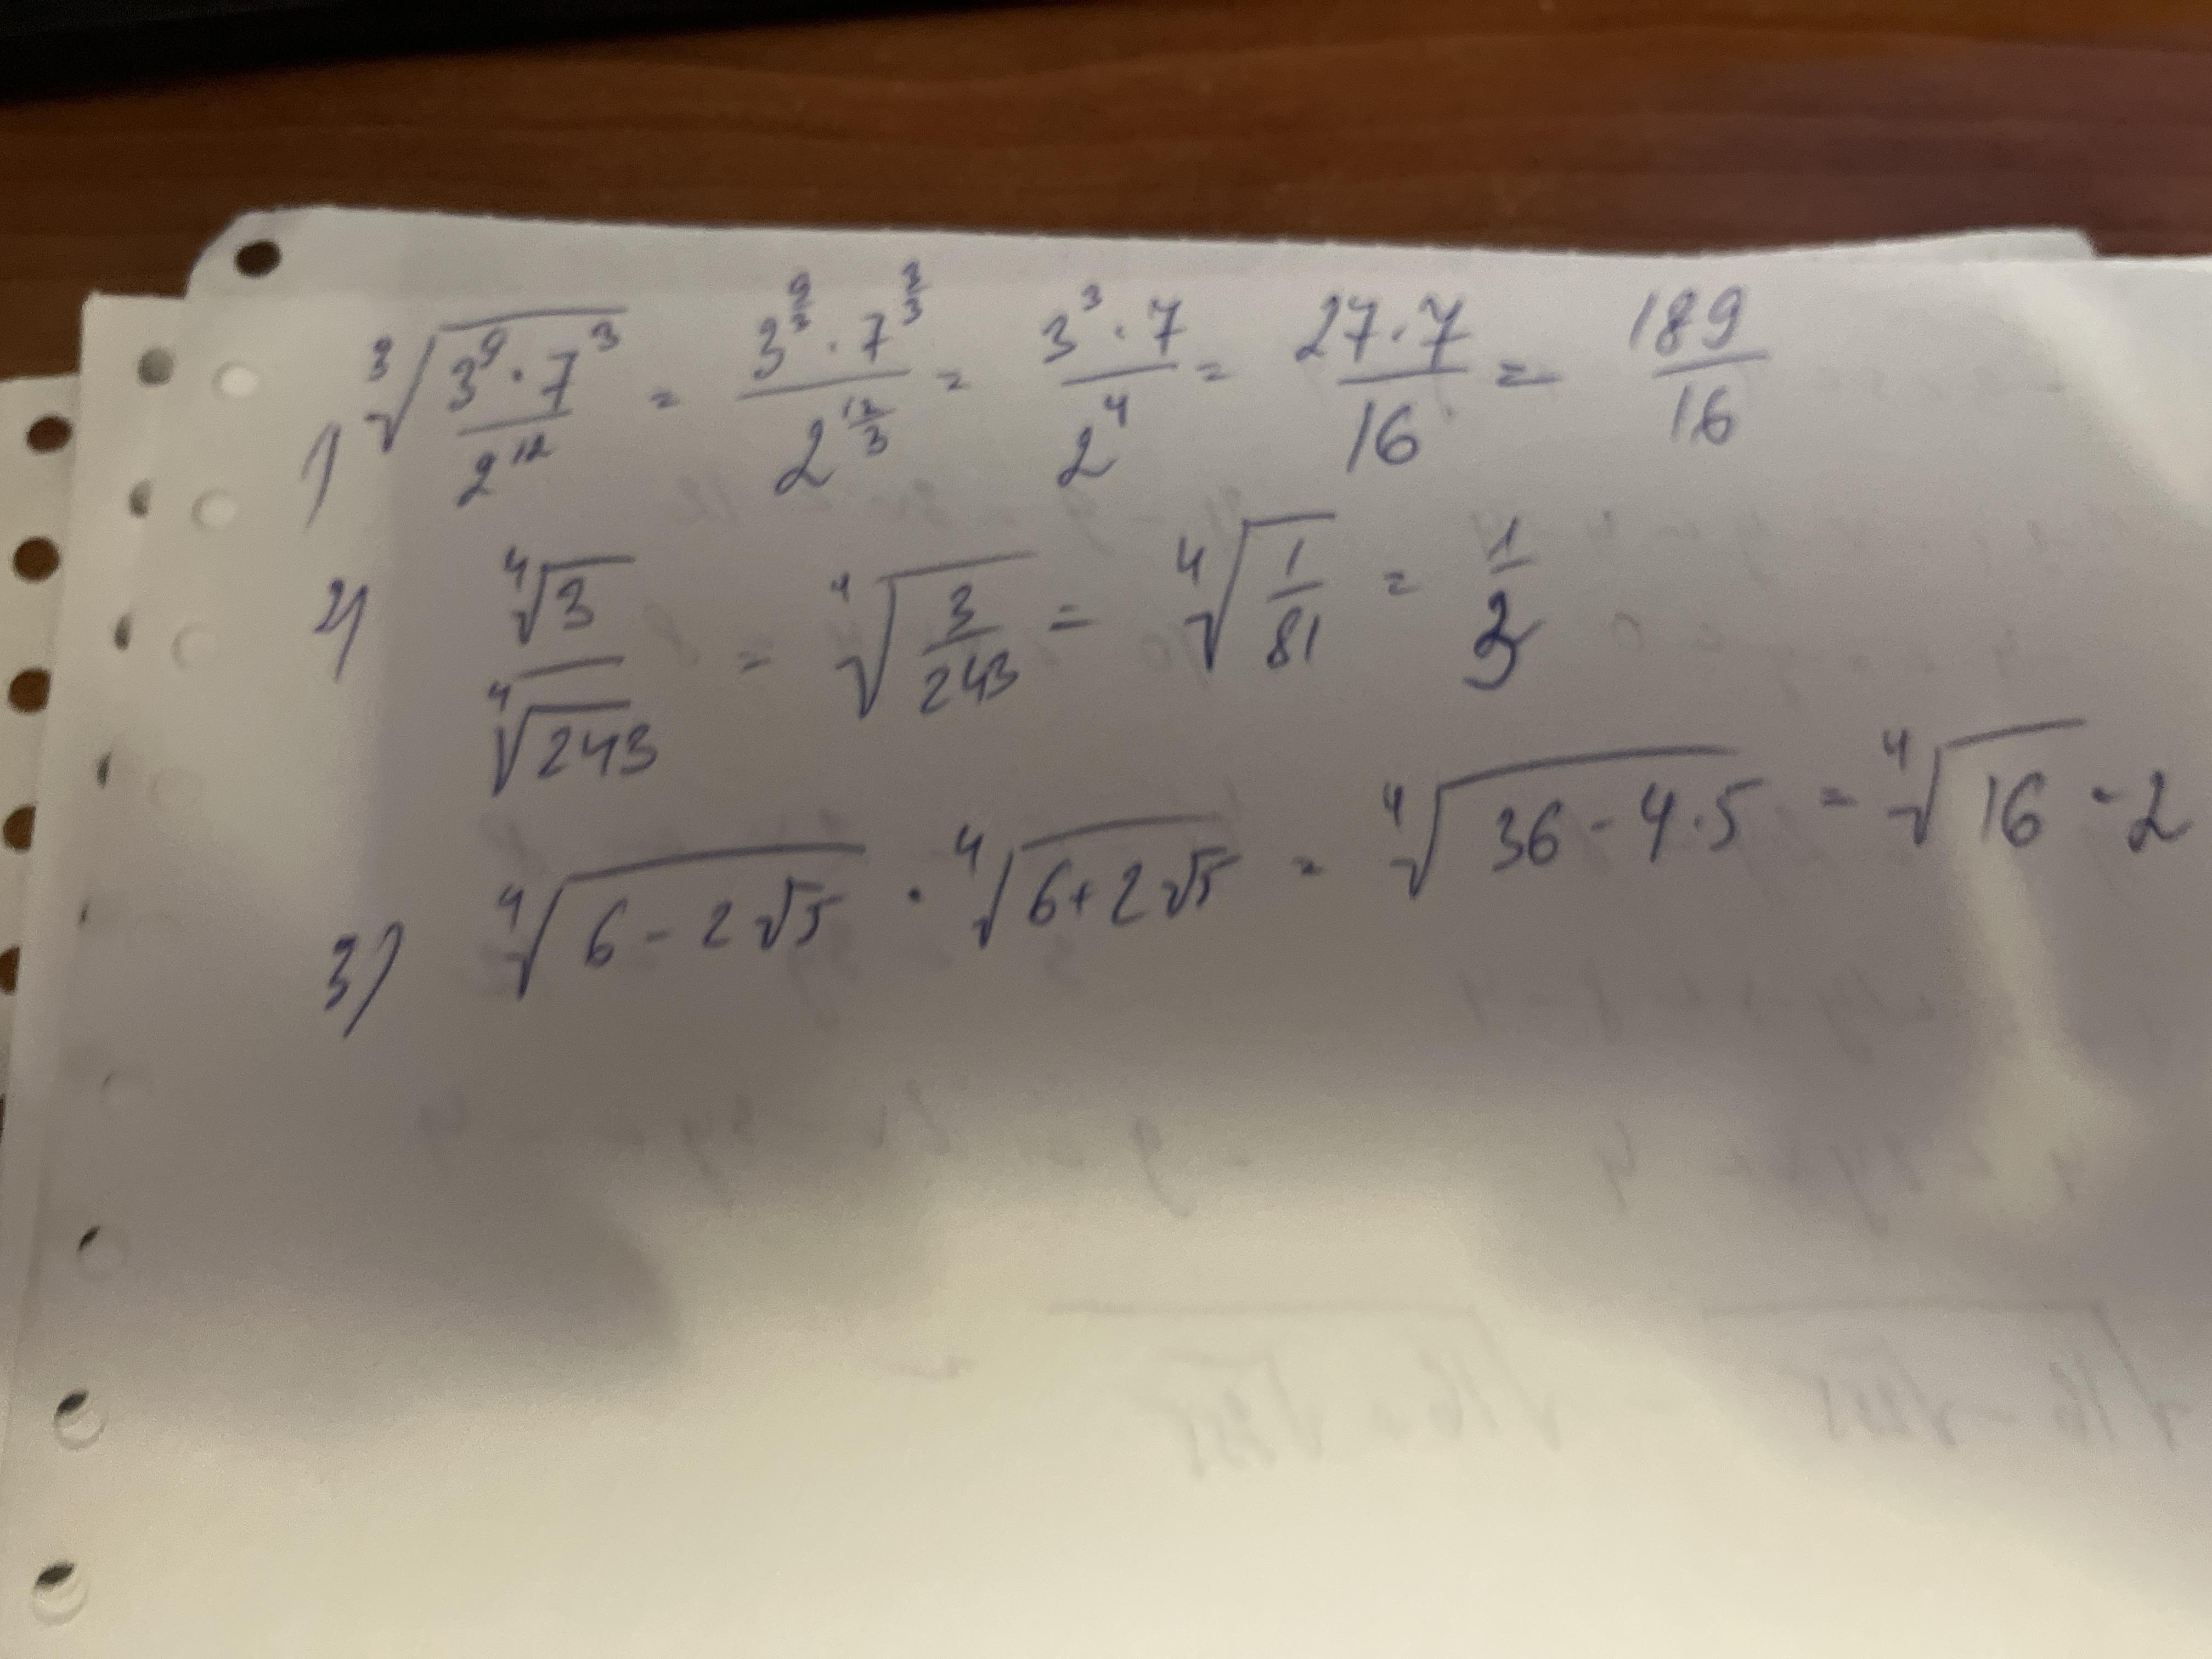 1) ∛(3⁹·7³/2¹²) = 3^(9/3)·7^(3/3)/2^(12/3) = 3³·7/2⁴ = 27·7/16 = 189/16
2) ∜3/∜243 = ∜(3/243) = ∜(1/81) = 1/3
3) ∜(6-2√5) · ∜(6+2√5) = ∜(36-4·5) = ∜16 = 2